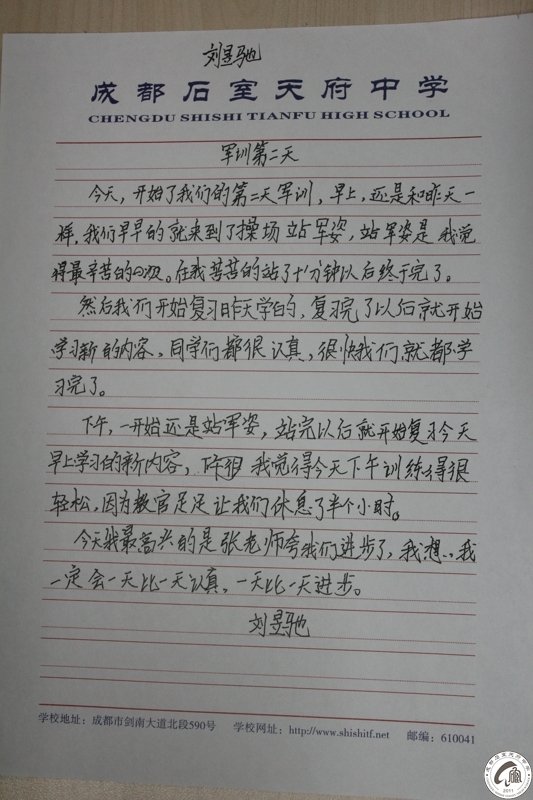 刘昱驰
成都石室天府中学
CHENGDU SHISHI TIANFU HIGH SCHOOL
军训第二天
今天,开始了我们的第二天军训,早上,还是和昨天一
样,我们早早的就来到了操场站军姿,站军姿是我觉
得最辛苦的。在我苦苦的站了十分钟以后终于完了。
然后我们开始复习昨天学的,复习完了以后就开始
学习新的内容,同学们都很认真,很快我们就都学
习完了。
下午,一开始还是站军姿,站完以后就开始复习今天
早上学习的新内容,我觉得今天下午训练得很
轻松,因为教官足足让我们休息了半个小时。
今天我最高兴的是张老师夸我们进步了,我想,我
一定会一天比一天认真,一天比一天进步。
刘昱驰
学校地址:成都市剑南大道北段590号 学校网址:http://www.shishitf.net 邮编:610041
2011